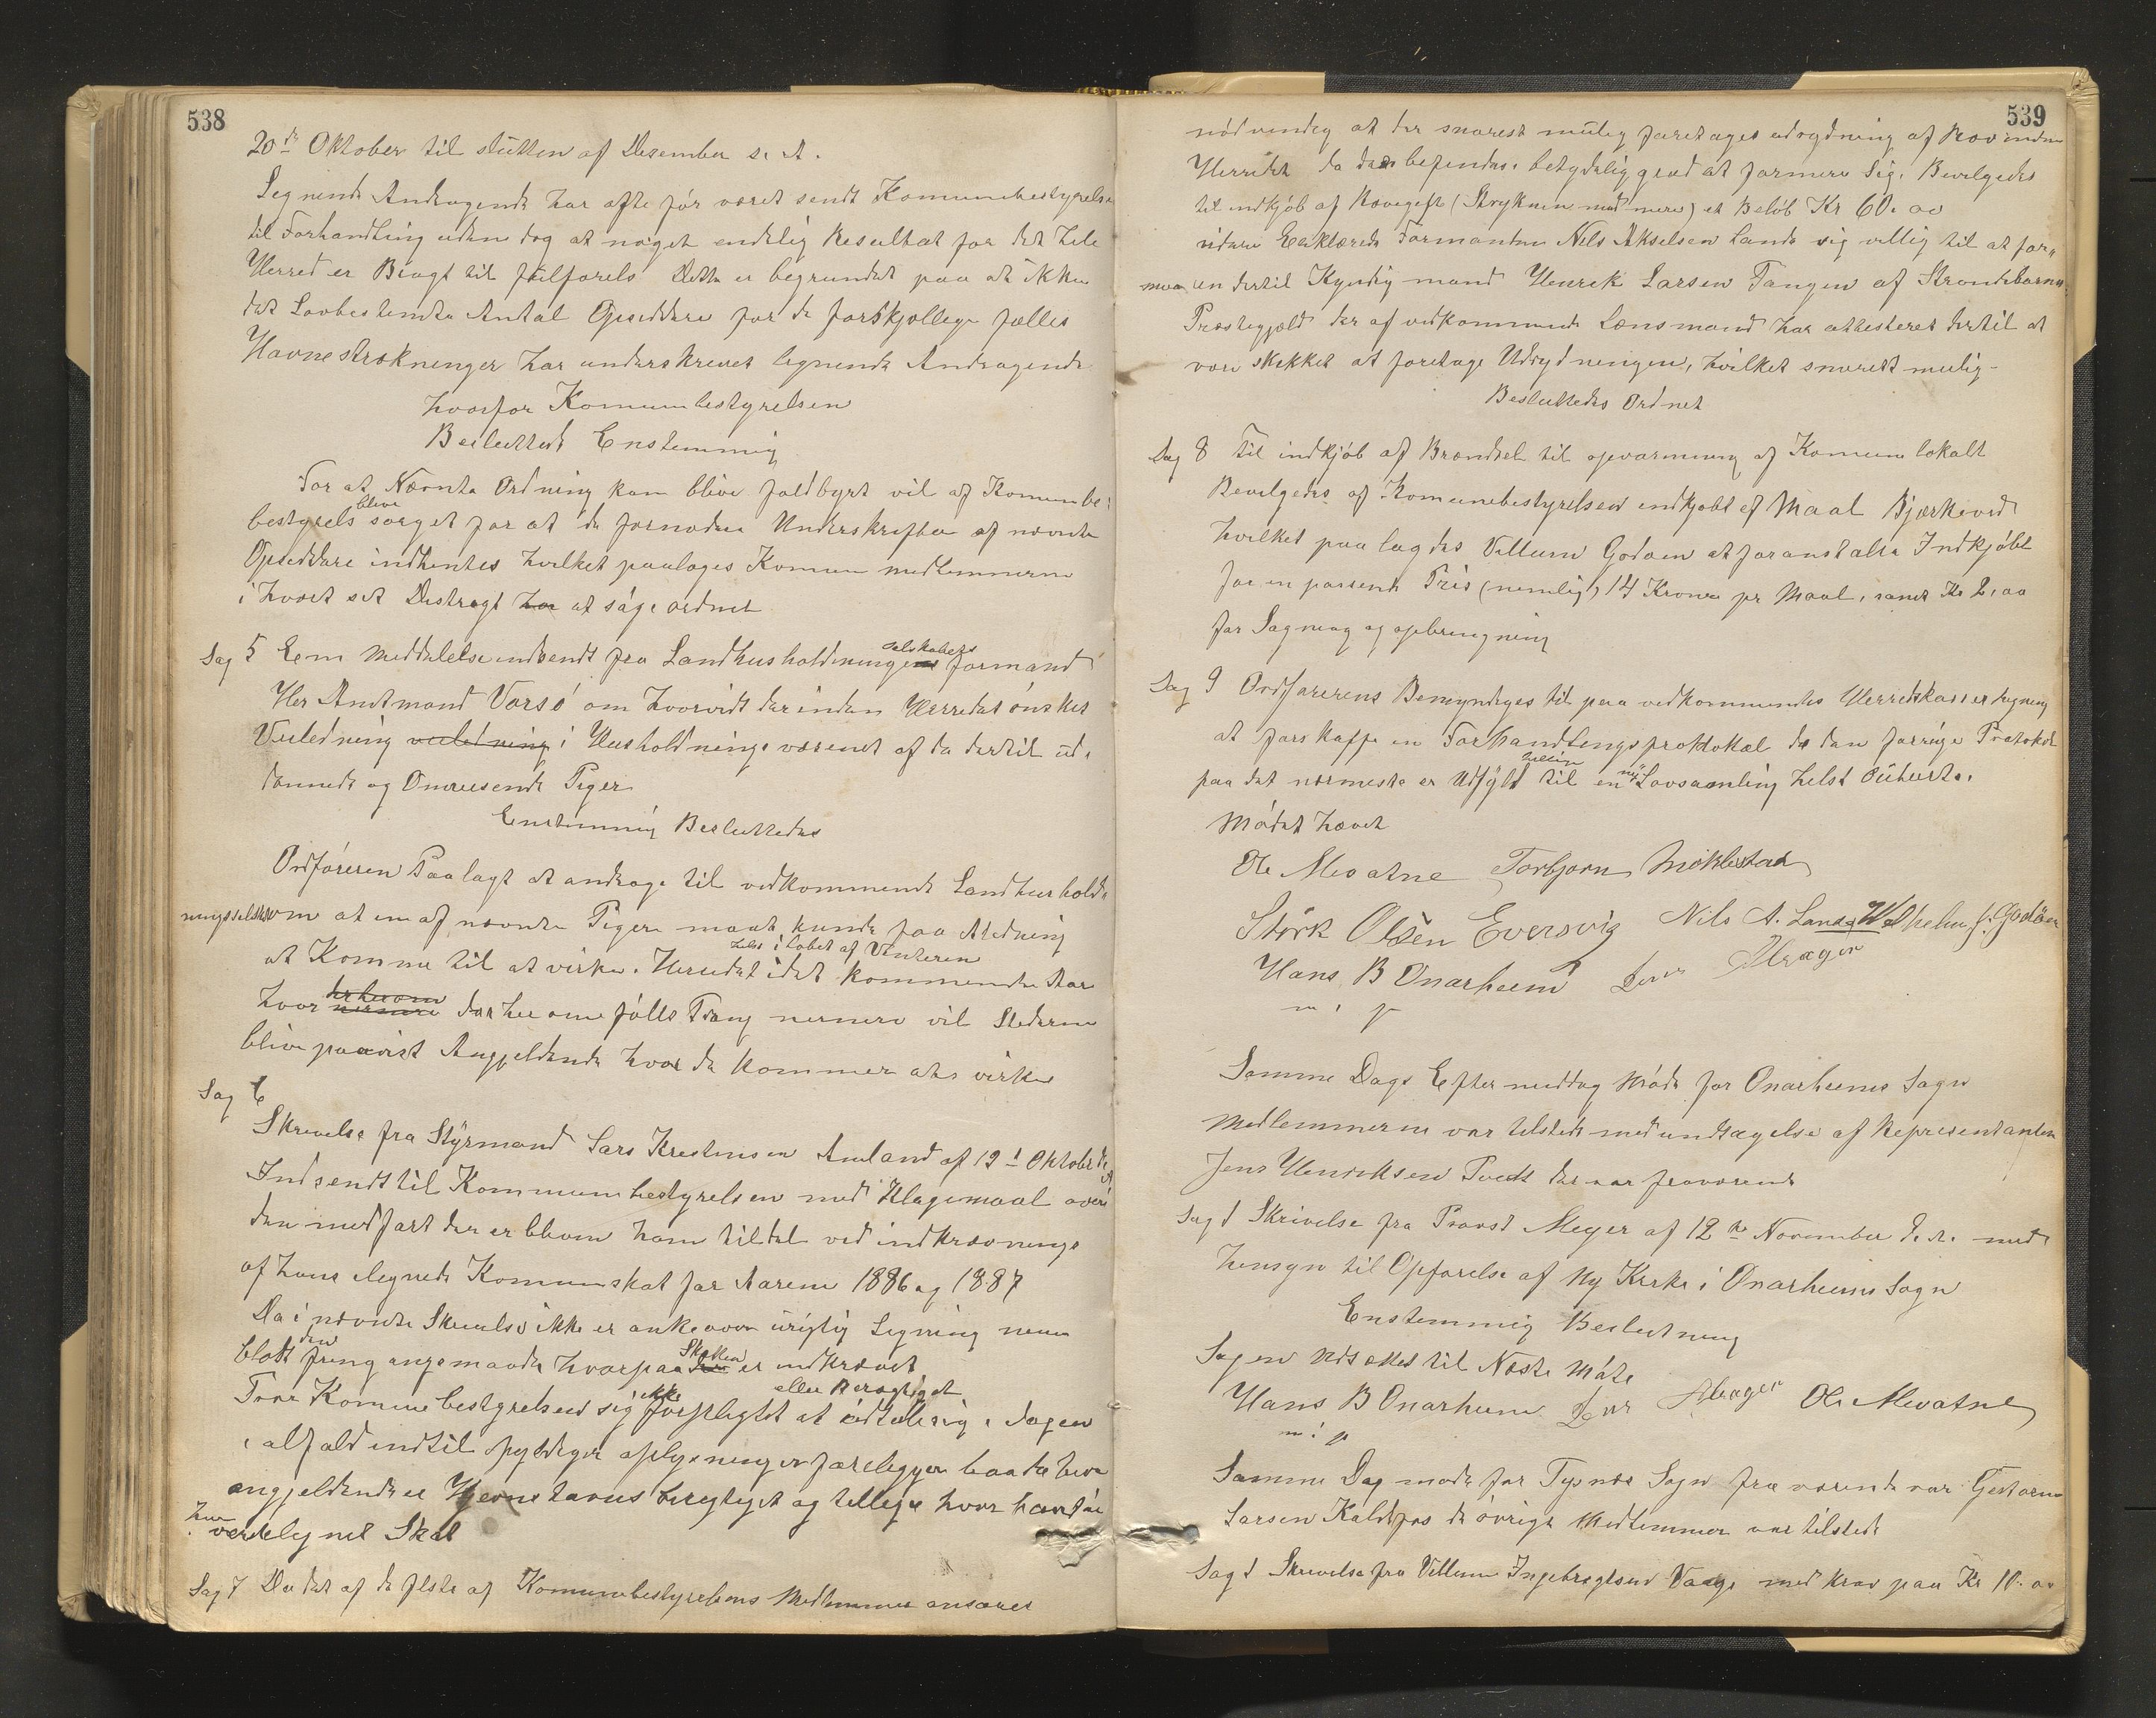 538
20de Oktober til slutten af Desember d. A.
Lignende Andragende har ofte før været sendt Komunebestyrelse
til Forhandling uden dog at noget endelig Resultat for det hele
Herred er Bragt til fulførels Dette er begrundet paa at ikke
det Lovbestemte Antal Opsiddere for de forskjellige fælles
Havnestrækninger har underskrevet lignende Andragende
hvorfor Komunebestyrelsen
Besluttede Enstemmig
For at Nævnte Ordning kan blive fuldbyrt vil af Komunebe-
bestyrels blive sørget for at de fornødne Underskrifter af nævnte
Opsiddere indhentes hvilket paalages Komune medlemmerne
i hvært sit Distrægt har at søge ordnet
Sag 5 Een Meddelelse indsendt fra Landhusholdningens selskabets formand
Her Amtmand Vorsø om hvorvidt der inden Herredet ønskes
Veiledning veiledning i Husholdnings væsenet af de dertil ud-
dannede og Omreisende Piger
Enstemmig Besluttedes
Ordføreren Paalagt at andrage til vedkommende Landhushold-
ningsselskab om at en af nævnte Piger maat kunde faa Anledning
at Komme til at virke i Herredet i det kommende Aar helst i løbet af Vinteren
hvor nermere der herom der her om føles Trang nermere vil Stederne
blive paavist Angjeldende hvor de kommer at virke
Sag 6
Skrivelse fra Styrmand Lars Kristensen Amland af 19d Oktober d. A.
Indsendt til Kommunebestyrelsen med Klagemaal over
den medfart der er bleven ham tildel ved indkrævninge
af hans ilignede Komuneskat for Aarene 1886 og 1887
Da i nævnte Skrivelse ikke er anke over urigtig Ligning men
blott den fremgangsmaade hvorpaa den Skatten er indkrævet
Troer Kommunebestyrelsen sig ikke forpligtet eller Beregtiget at udtale sig i Sagen
i alfald indtil fyldigere oplysninger forelegger baade hvor
angjeldende er Hjemstavns beregtiget og tillige hvor han før
har vært ilignet Skat
Sag 7 Da det af de fleste af Komunebestyrelsens Medlemmer ansees
539
nødvendig at der snarest mulig foretages udrydning af Rov inden
Herredet da den befindes i betydelig grad at formere sig. Bevilgedes
til indkjøb af Rævegift (Stryknin med mere) et Beløb Kr 60.00
videre Erklærede Formanden Nils Akselsen Lande sig villig til at for-
maa en dertil Kyndig mand Henrik Larsen Tangen af Strandebarms
Præstegjæld der af vedkommende Lænsmand har attesteret dertil at
være skikket at foretage Udrydningen, hvilket snarest mulig
Besluttedes Ordnet
Sag 8 Til indkjøb af Brændsel til opvarmning af Komune lokalt
Bevilgedes af Komunebestyrelsen indkjøbt et Maal Bjærkeved
hvilket paa lagdes Villum Godøen at foranstalte Indkjøbt
for en passende Pris (nemlig) 14 Kroner pr Maal, samt Kr 2,00
for Sagning og opbringning
Sag 9 Ordførerens Bemyndiges til paa vedkommendes Herredskasserers regning
at forskaffe en Forhandlingsprotokol da den forrige Protokol
paa det nermeste er Udfyldt tillige til en ny Lovsamling helst Ouherts.
Mødet hævet
Ole Mevatne Torbjørn Møklestad
Størk Olsen Eversvig Nils A. Lande Wilhelm J. Godøen
Hans B Onarheim Lars Ahrager
m. p
Samme Dags Eftermiddag Møde for Onarheims Sogn
Medlemmerne var tilstede med undtagelse af Representanten
Jens Henriksen Tvedt der var fraværende
Sag 1 Skrivelse fra Provst Meyer af 12te November d. A. med
hensyn til Opførelse af Ny Kirke i Onarheims Sogn
Enstemmig Beslutning
Sagen Udsættes til Næste Møte
Hans B Onarheim Lars Ahrager Ole Mevatne
m. p
Samme Dag møde for Tysnes Sogn fraværende var Gestarm
Larsen Kaldefos de øvrige Medlemmer var tilstede
Sag 1 Skrivelse fra Villum Ingebregtsen Vaage med krav paa Kr 10.00